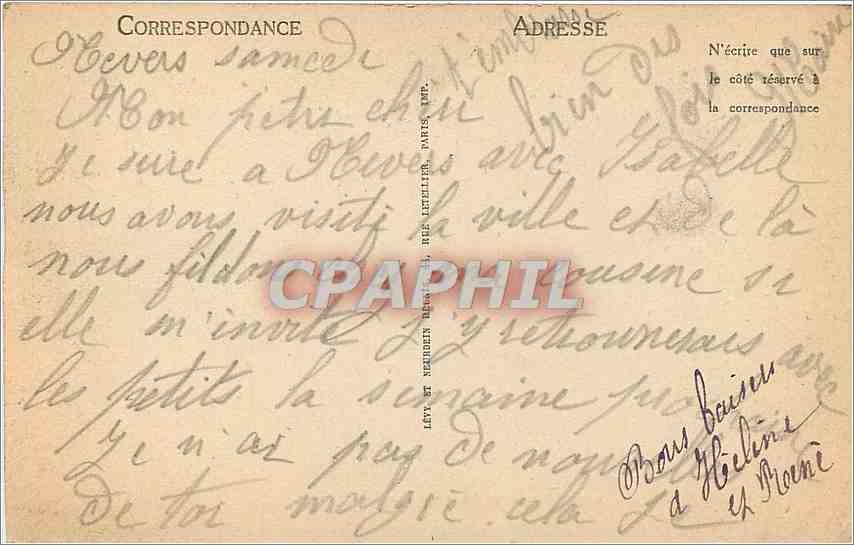 CORRESPONDANCE
ADRESSE
N'écrire que sur
le côté réservé à
la correspondance
LÉVY ET NEURDEIN RÉUNIS, 44, RUE LETELLIER, PARIS, IMP.
Nevers samedi
Mon petit cheri
Je suire a Nevers avec Isabelle
nous avons visiti la ville et de là
nous cousine si
elle m'invite j'y retrournerais avec
les petits la semaine
Je n'ai pas de
de toi malgré cela je
t'embrasse
bien des fois
Bons baisers
à Héline
et René
CPAPHIL